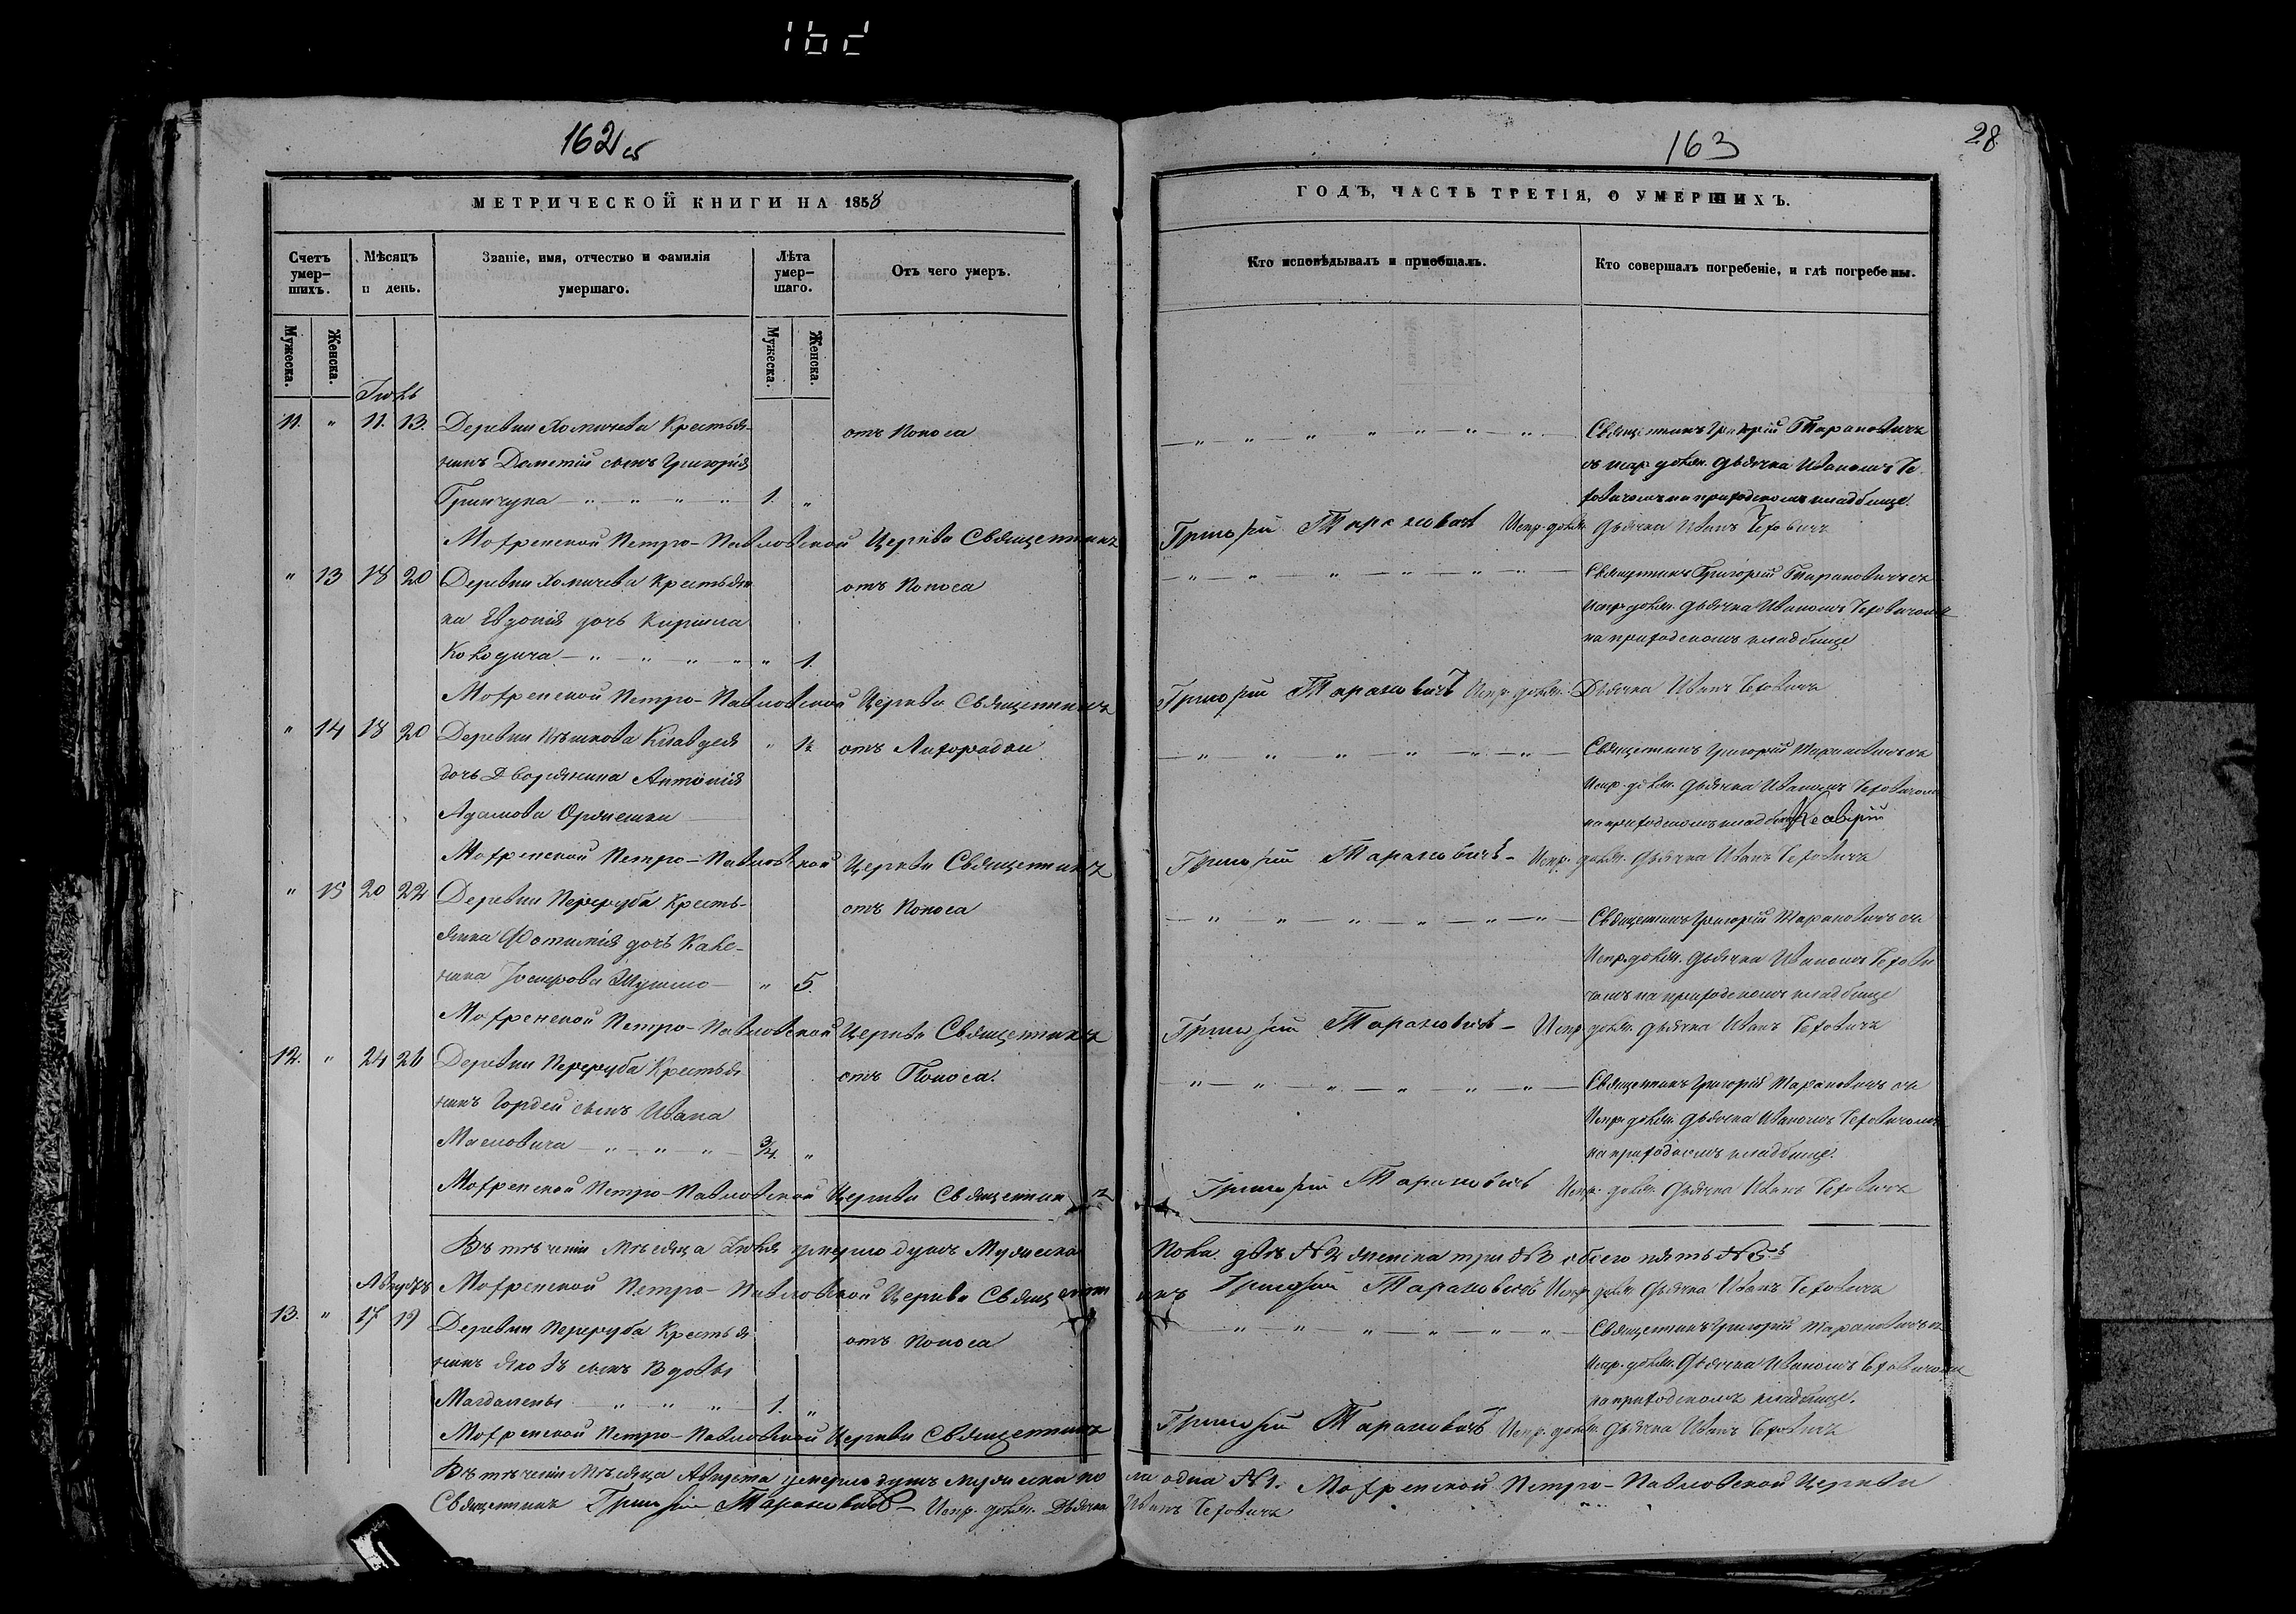 162
162 об
163
28
МЕТРИЧЕСКОЙ КНИГИ НА 1858
ГОДЪ, ЧАСТЬ ТРЕТІЯ, О УМЕРШИХЪ.
Счетъ умер-шихъ.
Мѣсяцъ и день.
Званіе, имя, отчество и фамилія умершаго.
Лѣта умер-шаго.
Отъ чего умеръ.
Кто исповѣдывалъ и пріобщалъ.
Кто совершалъ погребеніе, и гдѣ погребены.
Мужеска.
Женска.
Мужеска.
Женска.
Іюль
11. " 11. 13. Деревни Хомичева Крестья-
нинъ Дометій сынъ Григорія
Гринчука — " — " — " — " 1. "
отъ Поноса
Священникъ Григорій Тарановичъ
съ испр. долж. Дьячка Иваномъ Че-
ховичомъ на приходскомъ кладбище.
Мохренской Петро-Павловской Церкви Священникъ Григорій Тарановичъ Испр. долж. Дьячка Иванъ Чеховичъ
" 13 18 20 Деревни Хомичева Крестьян
ка Евдокія дочь Кирилла
— " — " — " — " " 1.
отъ Поноса
Священникъ Григорій Тарановичъ съ
Испр. долж. Дьячка Иваномъ Чеховичомъ
на приходскомъ кладбище
Мохренской Петро-Павловской Церкви Священникъ Григорій Тарановичъ Испр. долж. Дьячка Иванъ Чеховичъ
" 14 18 20 Деревни Клавдея "
дочь Дворянина Антонія
Адамова Орженшки
отъ Лихорадки
Священникъ Григорій Тарановичъ съ
Испр. долж. Дьячка Иваномъ Чеховичомъ
на приходскомъ
Мохренской Петро-Павловской Церкви Священникъ Григорій Тарановичъ – Испр. долж. Дьячка Иванъ Чеховичъ
" 15 20 22 Деревни Переруба Кресть-
янка Фотинія дочь
" 5.
отъ Поноса
Священникъ Григорій Тарановичъ съ
Испр. долж. Дьячка Иваномъ Чехови
чомъ на приходскомъ кладбище
Мохренской Петро-Павловской Церкви Священникъ Григорій Тарановичъ – Испр. долж. Дьячка Иванъ Чеховичъ
12. " 24 26 Деревни Переруба Крестья
нинъ Гордей сынъ Ивана
Масловича — " — " — " — 3/4. "
отъ Поноса.
Священникъ Григорій Тарановичъ съ
Испр. долж. Дьячка Иваномъ Чеховичомъ
на приходскомъ кладбище.
Мохренской Петро-Павловской Церкви Священникъ Григорій Тарановичъ Испр. долж. Дьячка Иванъ Чеховичъ
Въ теченіи Мѣсяца Іюля умерло душъ Мужеска Пола двѣ №2 Женска три №3 обоего пять №5
Августъ Мохренской Петро-Павловской Церкви Священникъ Григорій Тарановичъ Испр. долж. Дьячка Иванъ Чеховичъ
13. " 17 19 Деревни Переруба Крестья
нинъ Яковъ сынъ Вдовы
Магдалены — " — " — " — 1. "
отъ Поноса
Священникъ Григорій Тарановичъ съ
Испр. долж. Дьячка Иваномъ Чеховичомъ
на приходскомъ кладбище.
Мохренской Петро-Павловской Церкви Священникъ Григорій Тарановичъ Испр. долж. Дьячка Иванъ Чеховичъ
Въ теченіи Мѣсяца Августа умерло душъ мужеска пола одна №1. Мохренской Петро-Павловской Церкви
Священникъ Григорій Тарановичъ – Испр. долж. Дьячка Иванъ Чеховичъ